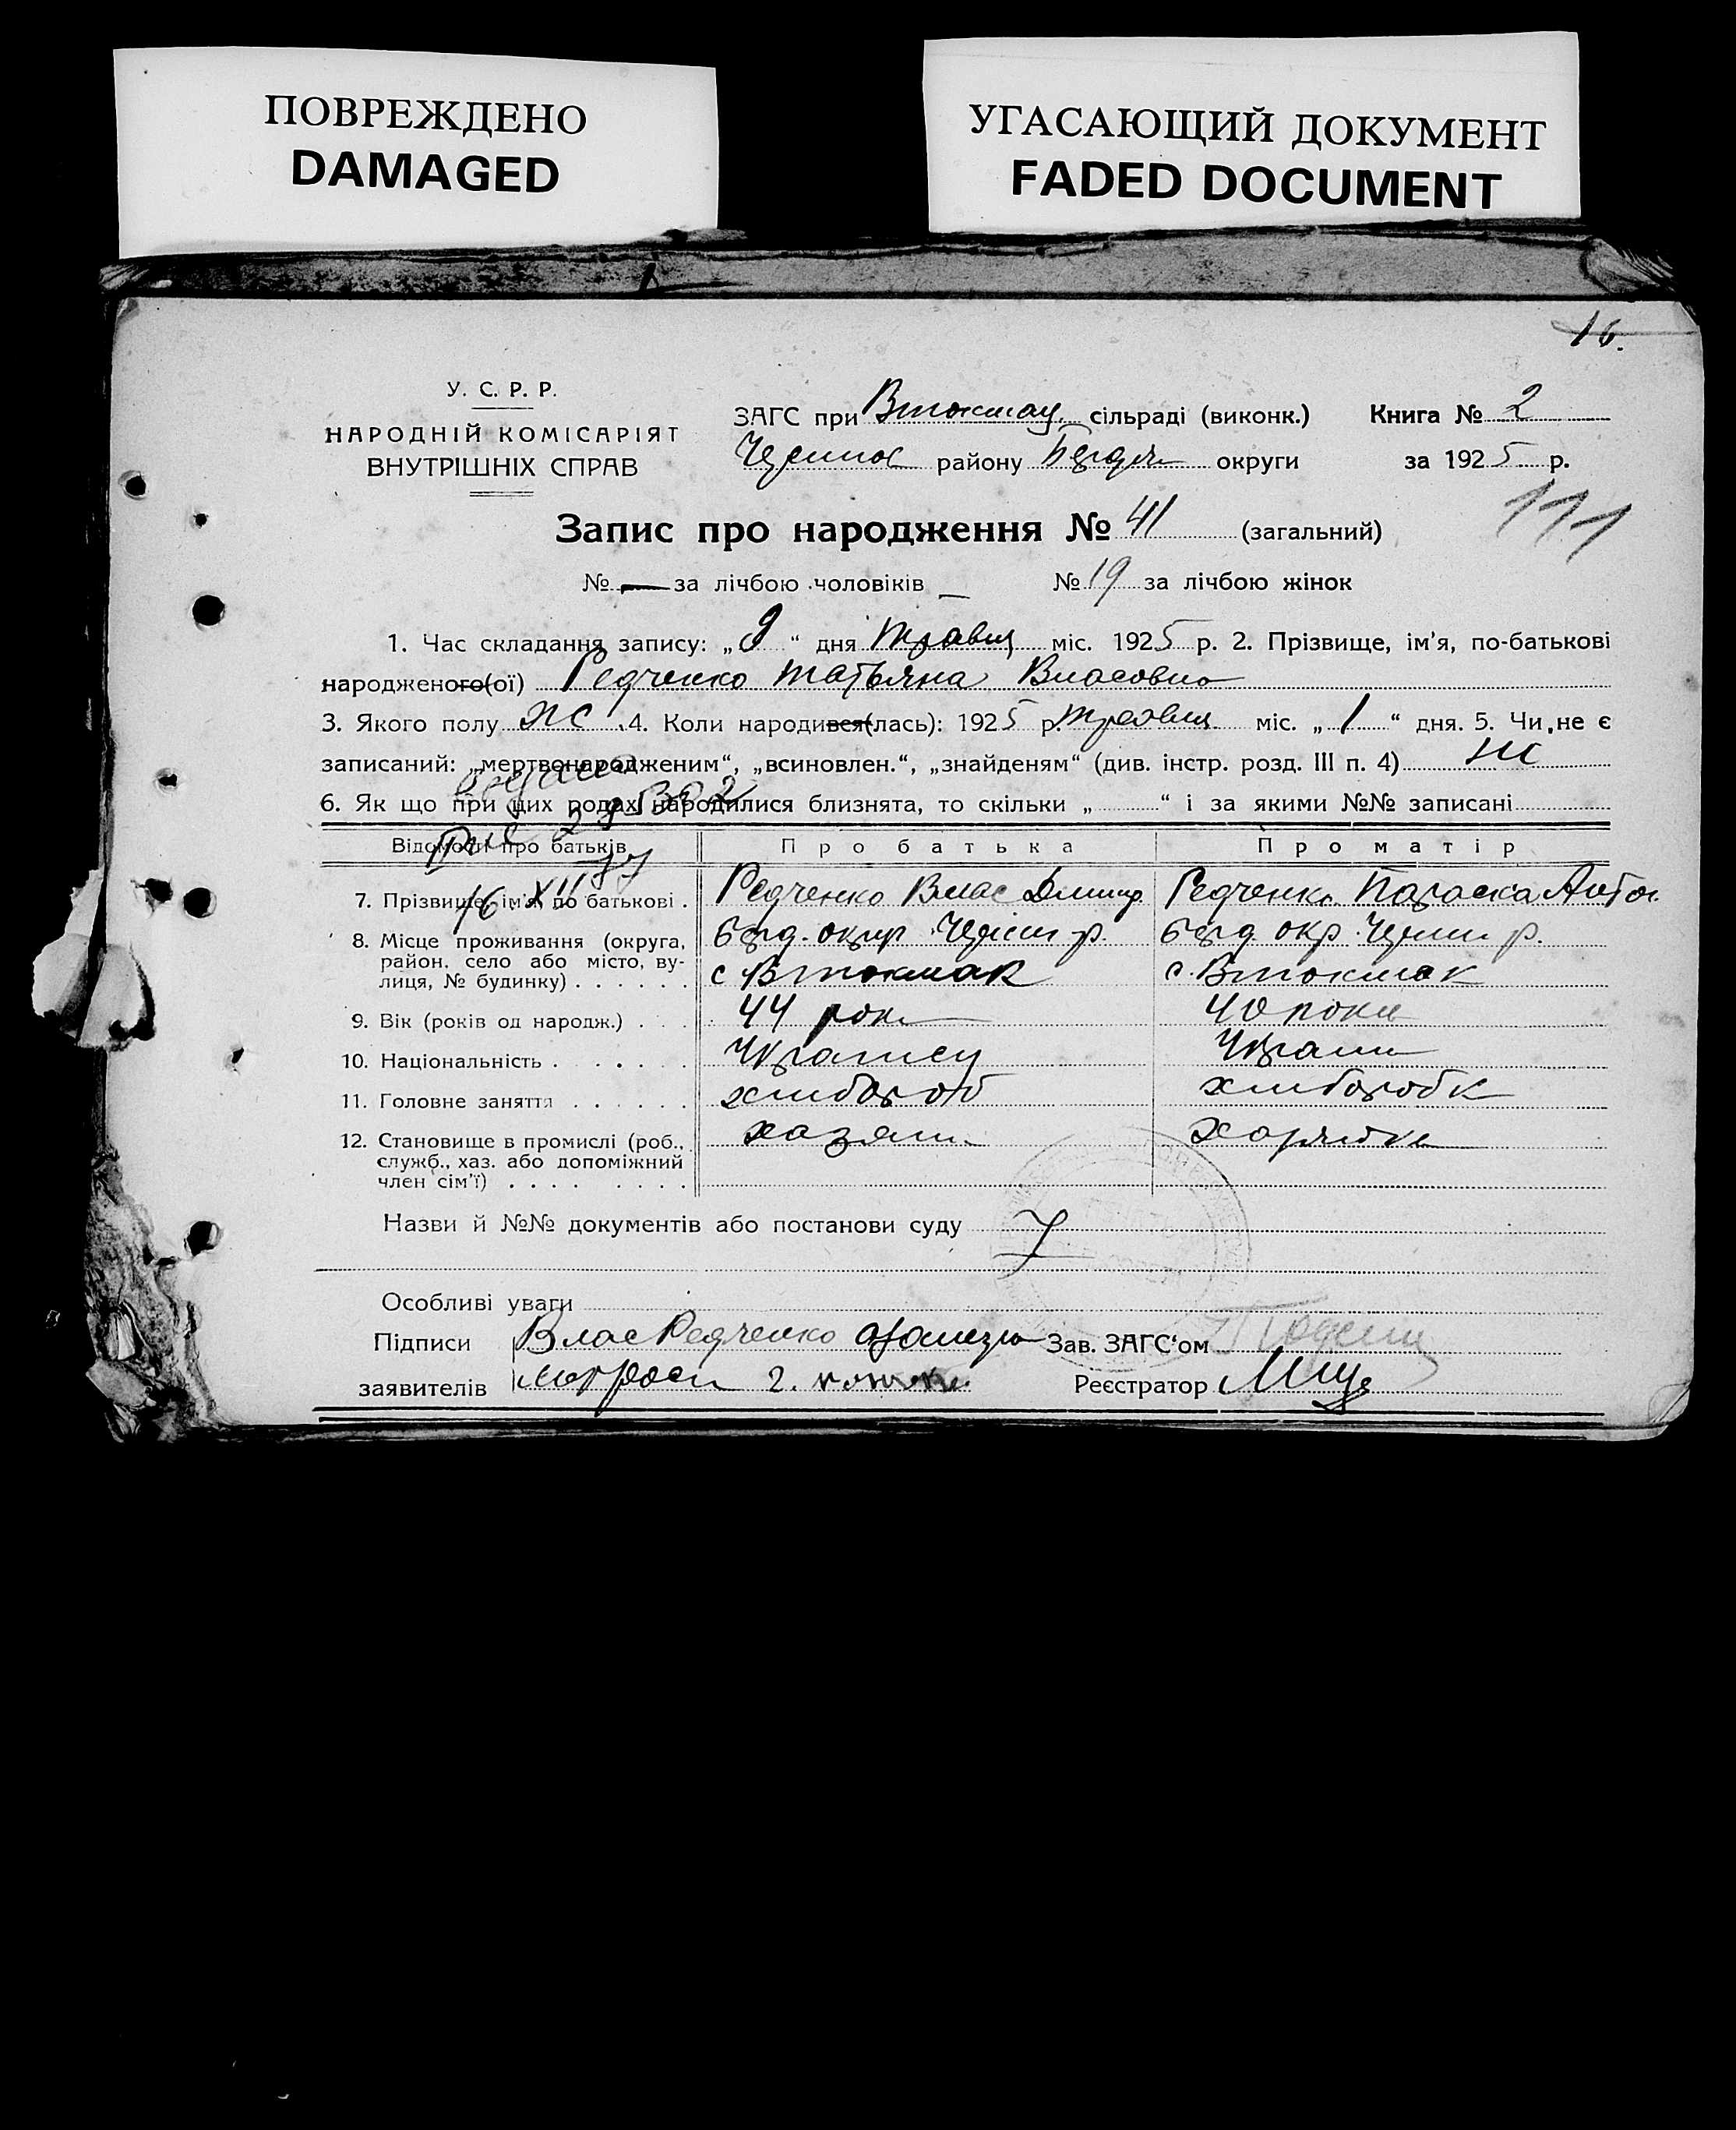 ПОВРЕЖДЕНО
DAMAGED
УГАСАЮЩИЙ ДОКУМЕНТ
FADED DOCUMENT
16.
У. С. Р. Р.
НАРОДНІЙ КОМІСАРІЯТ
ВНУТРІШНІХ СПРАВ
ЗАГС при Втокмац. сільраді (виконк.) Книга № 2
району округи за 1925 р.
111
Запис про народження № 41 (загальний)
№ — за лічбою чоловіків — № 19 за лічбою жінок
1. Час складання запису: „9“ дня травня міс. 1925 р. 2. Прізвище, ім’я, по-батькові
народженого(ої) Редченко Татьяна Власовна
3. Якого полу жс 4. Коли народився(лась): 1925 р. травня міс. „1“ дня. 5. Чи не є
записаний: „мертвонародженим“, „всиновлен.“, „знайденям“ (див. інстр. розд. III п. 4) не
6. Як що при цих родах народилися близнята, то скільки „ “ і за якими №№ записані
Відомости про батьків Про батька Про матір
16 XII 77
7. Прізвище, ім’я, по батькові . Редченко Влас Дмитр Редченко Параска Антон.
8. Місце проживання (округа, Берд. окр Черніг р. Берд. окр. Черніг р.
район, село або місто, ву-
лиця, № будинку) . . . . . . с Втокмак с. Втокмак
9. Вік (років од народж.) . . . 44 роки 40 роки
10. Національність . . . . . . Украинец Украин
11. Головне заняття . . . . . . хлибороб хлиборобк
12. Становище в промислі (роб., хазяин хазяйка
служб., хаз. або допоміжний
член сім’ї) . . . . . . . .
Назви й №№ документів або постанови суду
Особливі уваги
Підписи Влас Редченко Зав. ЗАГС‘ом
заявителів Реєстратор